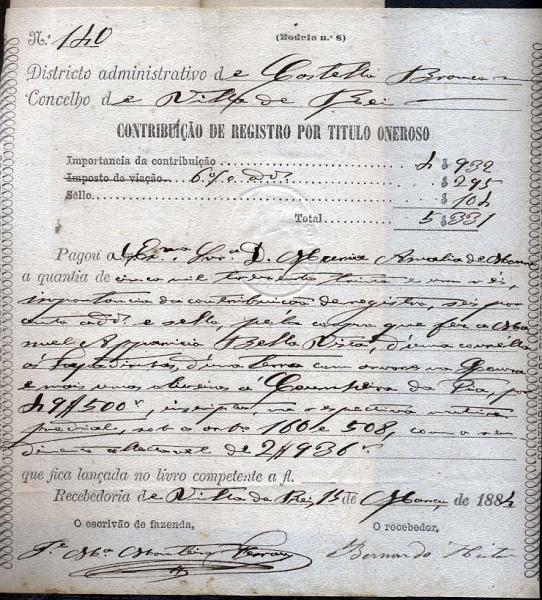 N.º 140 (Modelo n.º 8)
Districto administrativo de Castello Branco
Concelho de Villa de Rei
CONTRIBUIÇÃO DE REGISTRO POR TITULO ONEROSO
Importancia da contribuição 4 $ 932
Imposto de viação 6 % add.º $ 295
Sêllo $ 104
Total 5 $ 331
Pagou a Ex.ma Snr.ª D. Maria Amalia de
a quantia de cinco mil trezentos trinta e um reis,
importancia da contribuição de registro, seis por
cento add. e sello, pela compra que fez a Ma-
nuel Apparicio Bella Vista, d'uma
d'uma terra com
e mais umas oliveiras á da Pia, por
49$500 r, inscriptas, na respectiva matriz
predial, sob os art.os 160 e 508, com o ren-
dimento collectavel de 2$936 r.
que fica lançada no livro competente a fl.
Recebedoria de Villa de Rei, de Março de 1884
O escrivão de fazenda, O recebedor,
Bernardo